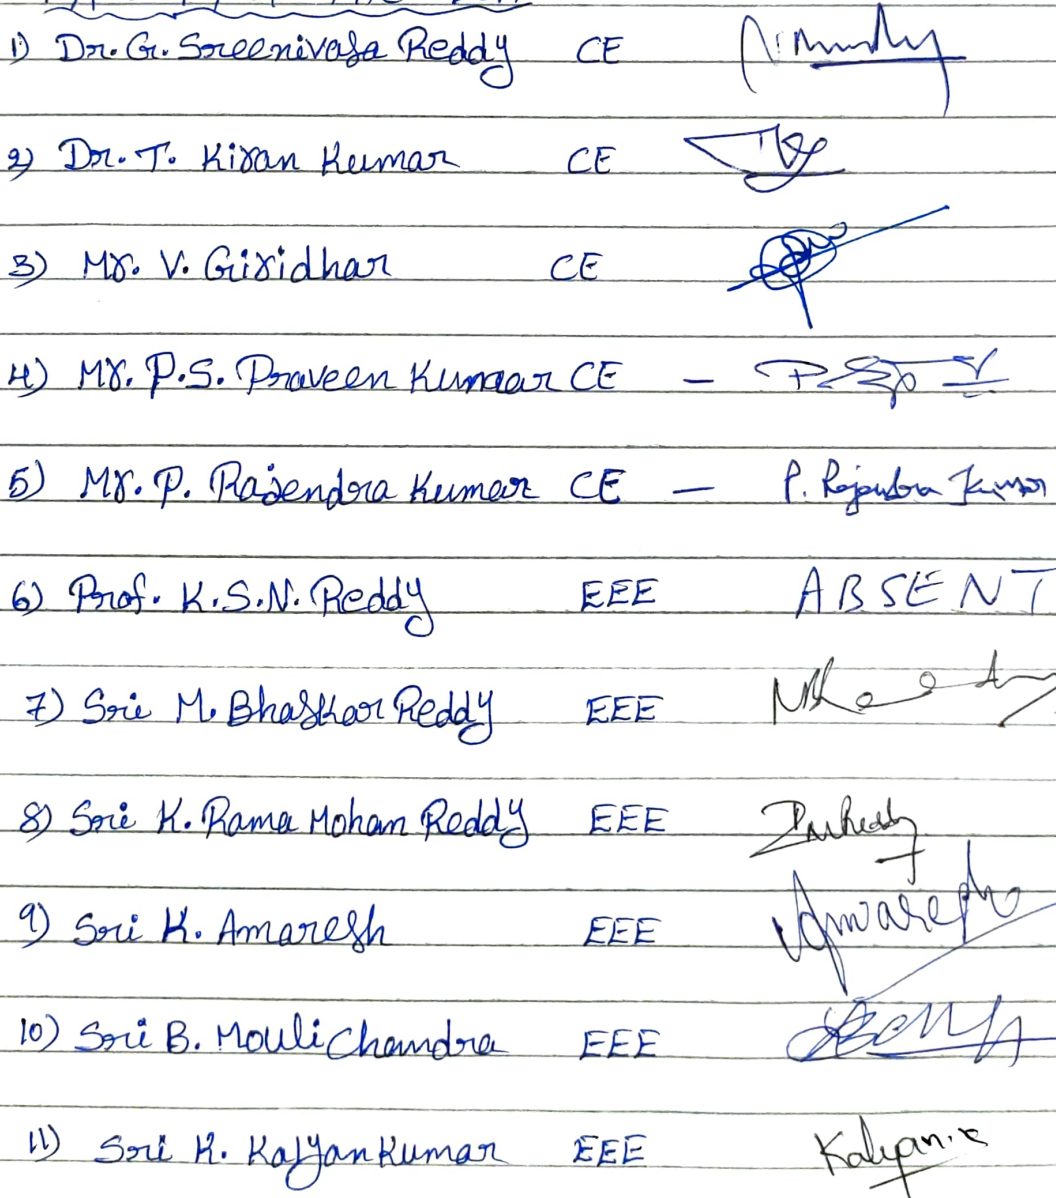 1) Dr. G. Sreenivasa Reddy CE
2) Dr. T. Kiran Kumar CE
3) Mr. V. Giridhar CE
4) Mr. P.S. Praveen Kumaar CE –
5) Mr. P. Rajendra Kumar CE – P. Rajendra Kumar
6) Prof. K.S.N. Reddy EEE ABSENT
7) Sri M. Bhaskar Reddy EEE
8) Sri K. Rama Mohan Reddy EEE
9) Sri K. Amaresh EEE Amaresh
10) Sri B. Mouli Chandra EEE
11) Sri K. Kalyan Kumar EEE Kalyan.k